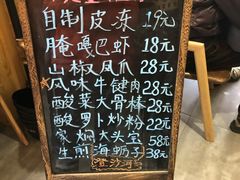 自制皮冻 19元
腌嘎巴虾 18元
山椒凤爪 28元
风味牛键肉 28元
酸菜大骨棒 28元
酸萝卜炒粉 22元
家焖大头宝 58元
生煎海蛎子 38元